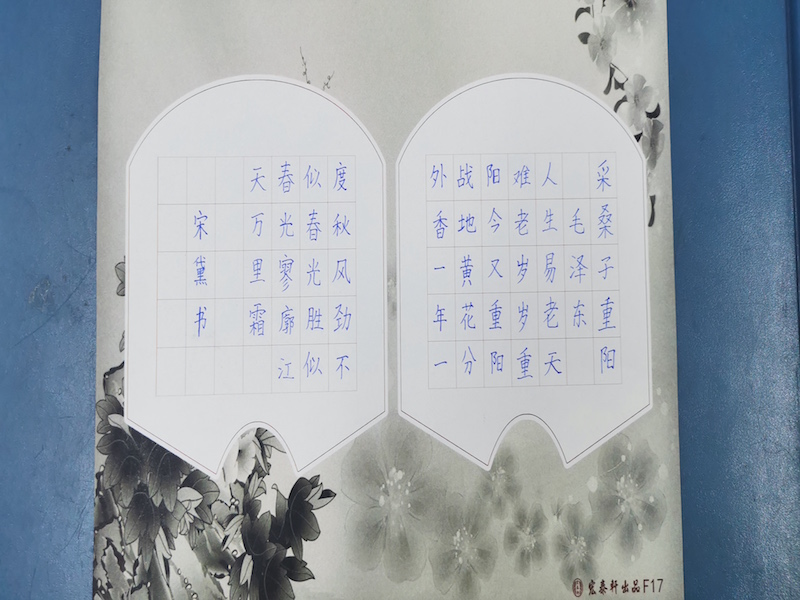 采桑子重阳
毛泽东
人生易老天
难老岁岁重
阳今又重阳
战地黄花分
外香一年一
度秋风劲不
似春光胜似
春光寥廓江
天万里霜
宋黛书
宏泰轩出品F17